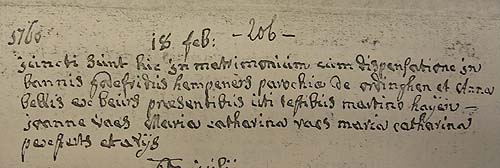 1760 18 feb: - 206 -
juncti sunt hic in matrimonium cum dispensatione in
bannis godefridus hempeners parochiæ de ordinghen et Anna
bellis ex beurs præsentibus uti testibus martino hayen -
joanne vaes Maria catharina vaes maria catharina
et alijs